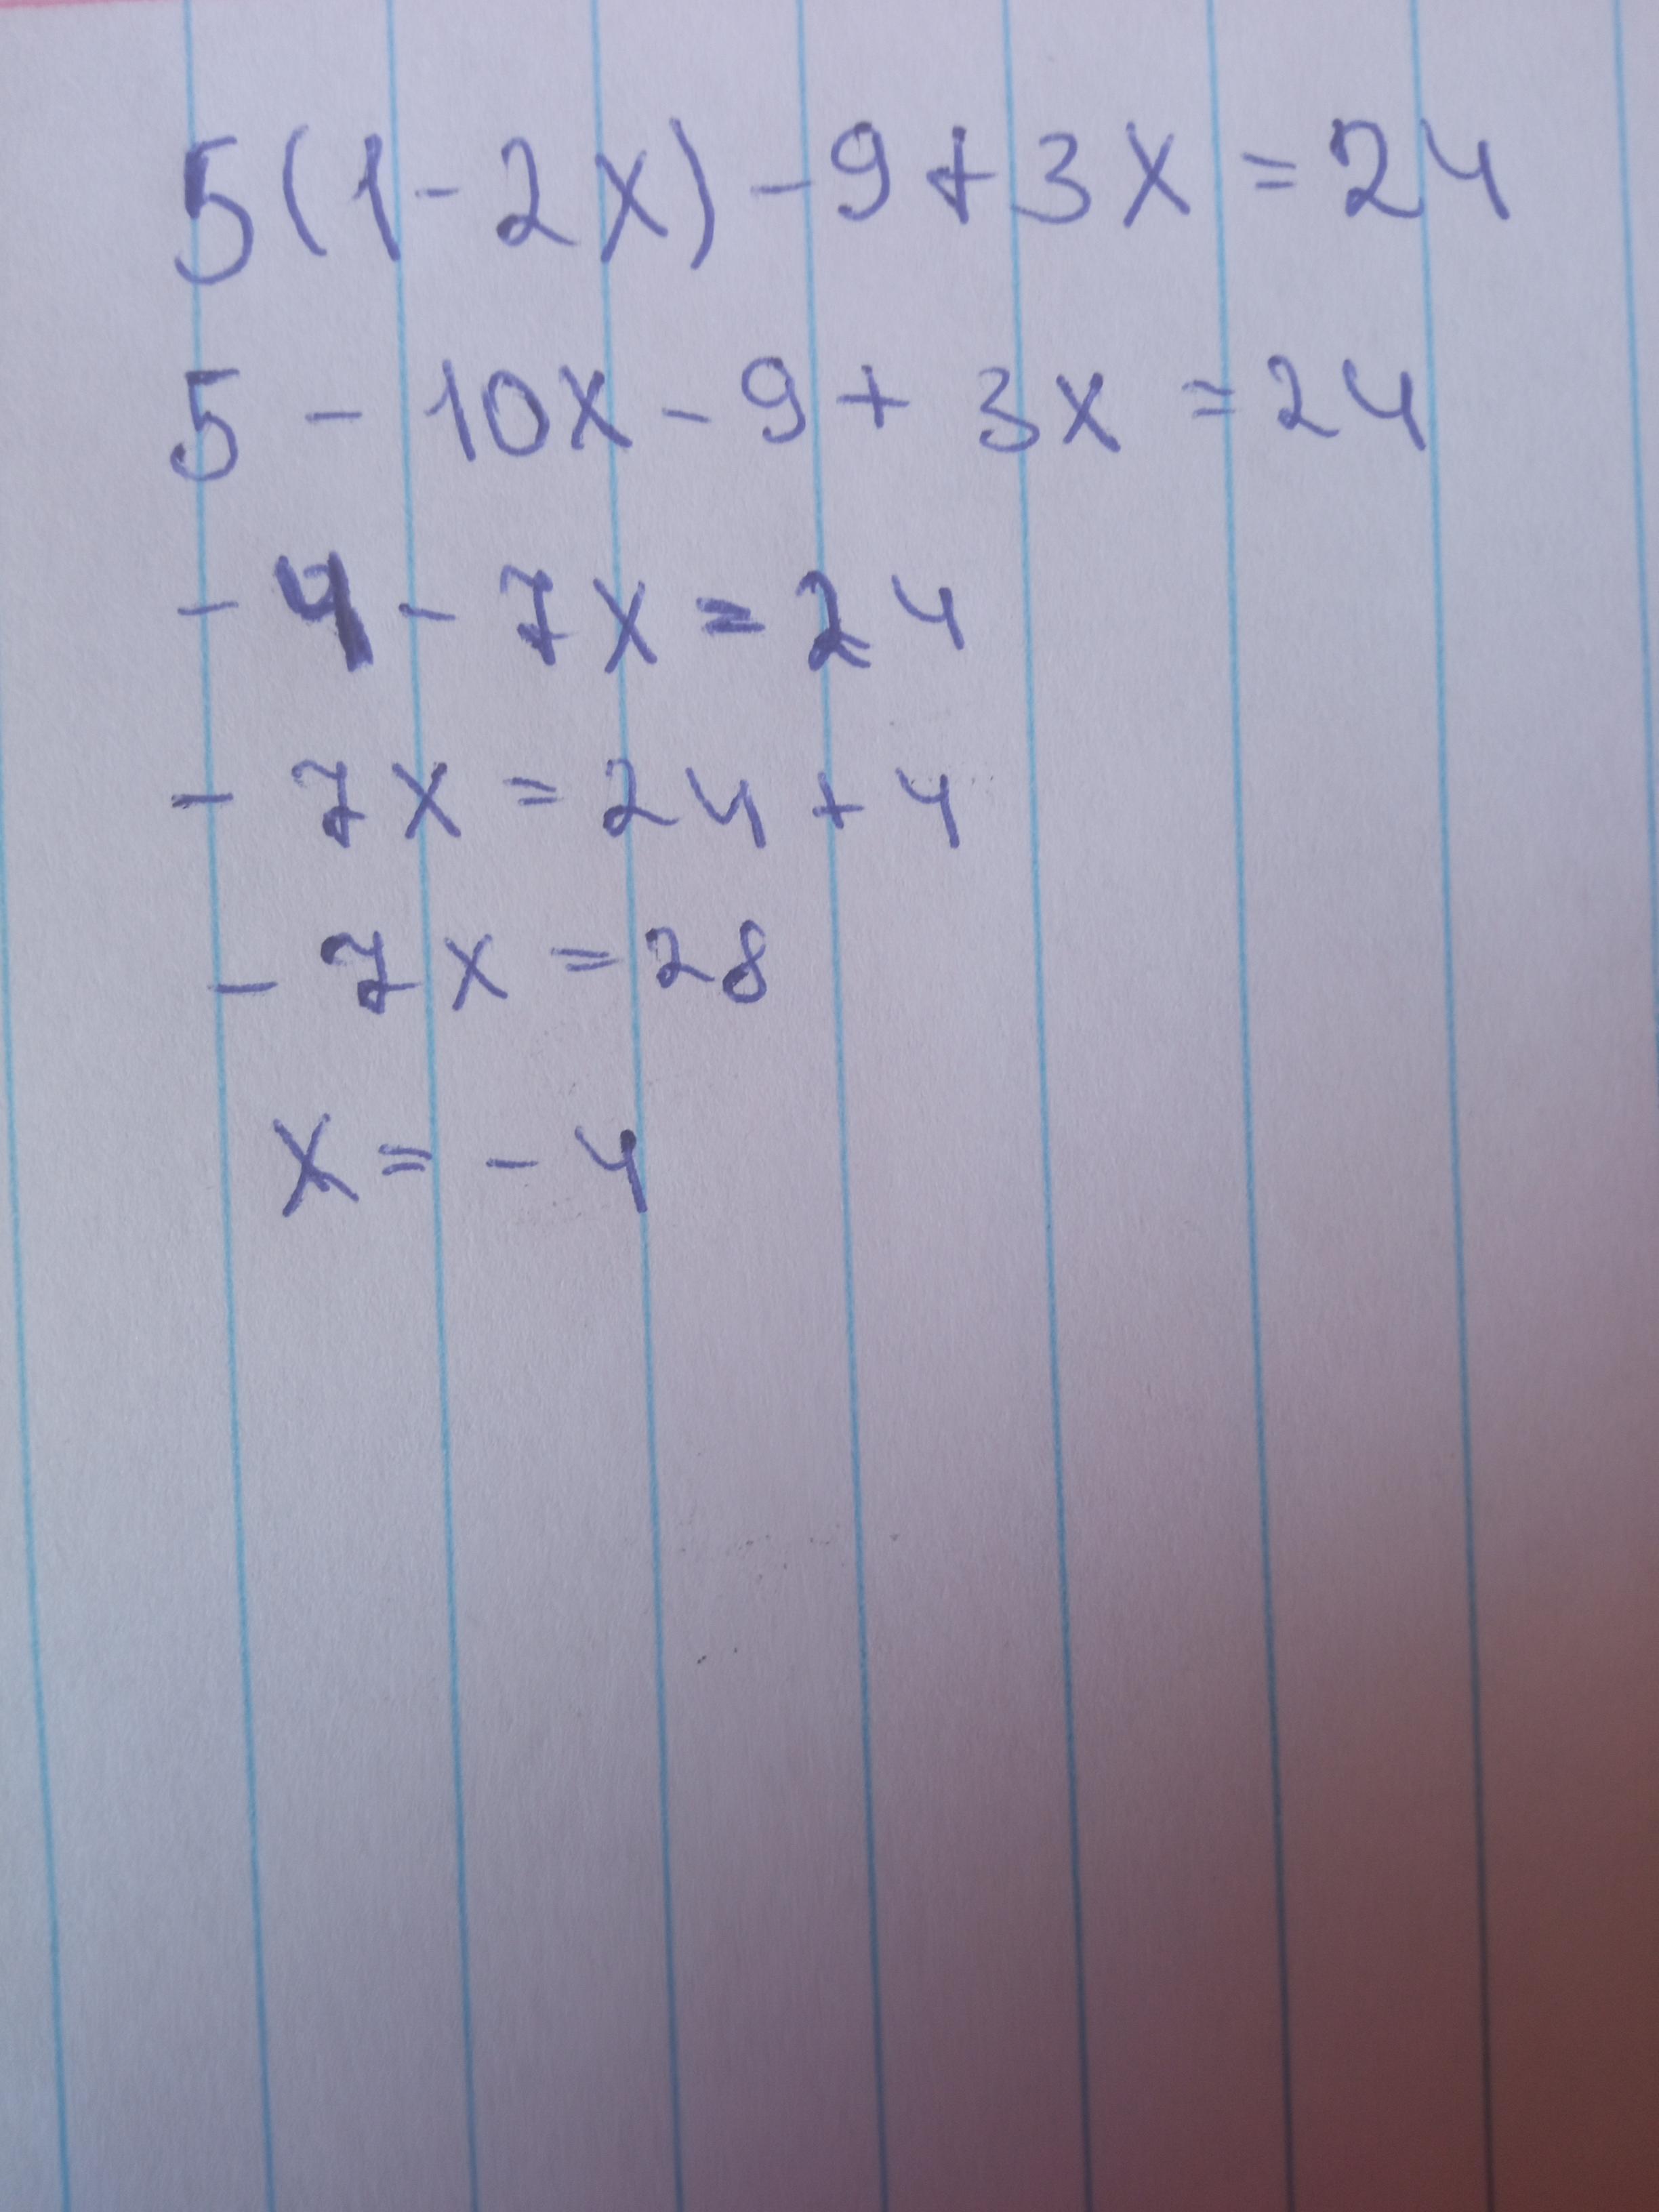 5(1-2x)-9+3x=24
5-10x-9+3x=24
-4-7x=24
-7x=24+4
-7x=28
x=-4